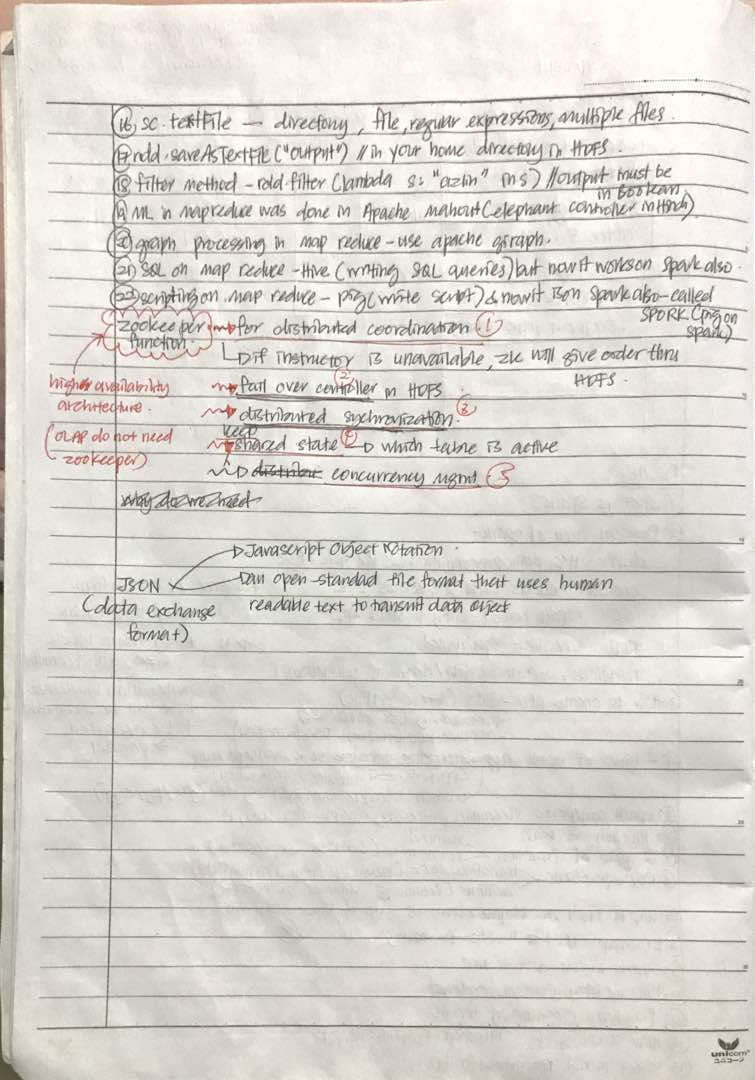 (16) sc.textFile — directory, file, regular expressions, multiple files.
(17) rdd.saveAsTextFile("output") // in your home directory in HDFS.
(18) filter method - rdd filter (lambda s: "azlin" in s) // output must be in Boolean
(19) ML in mapreduce was done in Apache mahout (elephant controller in Hindi)
(20) graph processing in map reduce - use apache giraph.
(21) SQL on map reduce - Hive (writing SQL queries) but now it works on spark also.
(22) scripting on map reduce - pig (write script) & now it is on spark also - called
SPORK (pig on spark)
zookeeper function. → for distributed coordination (1)
→ if instructor is unavailable, zk will give order thru
HDFS.
higher availability architecture.
→ fail over controller in HDFS (2)
→ distributed sychronization. (3)
(OLAP do not need zookeeper)
→ keep shared state (4) → which table is active
→ distribut concurrency mgmt (5)
why do we need
→ Javascript Object Notation.
JSON → an open-standad file format that uses human
(data exchange readable text to transmit data object
format)
unicom
ユニコーン